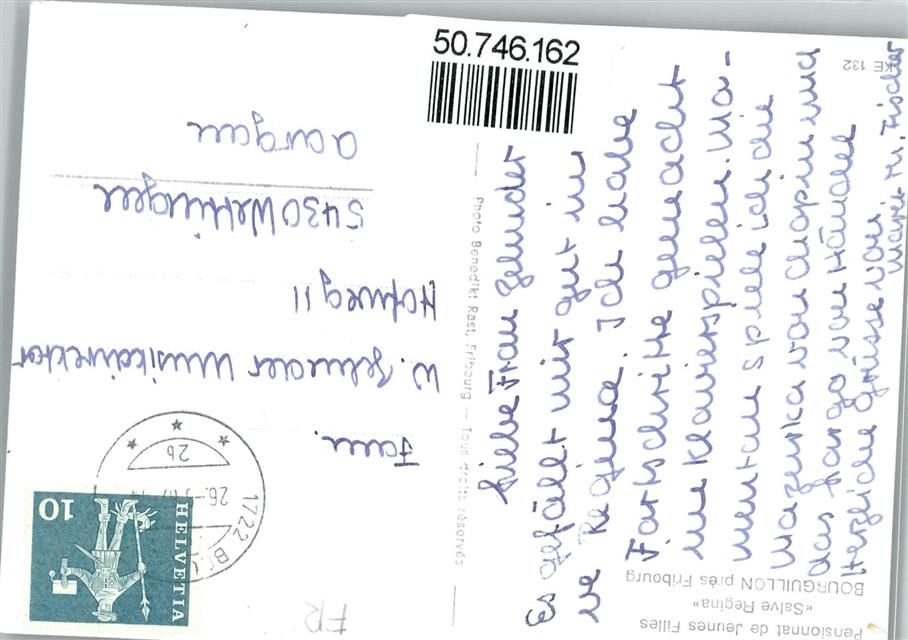 Pensionnat de Jeunes Filles
«Salve Regina»
BOURGUILLON près Fribourg
KE 132
Liebe Frau Zehnder
Es gefällt mir gut in
ve Regina. Ich habe
Fortschritte gemacht
im Klavierspielen. Mo-
mentan spiele ich die
Mazurka von Chopin und
das Largo von Händel
Herzliche Grüsse von.
M. Fischer
Photo Benedikt Rast, Fribourg — Tous droits réservés
Fam.
W. Zehnder Musikdirektor
Hofweg 11
5430 Wettingen
aargau
HELVETIA
10
1722
26.
2b
FR
50.746.162